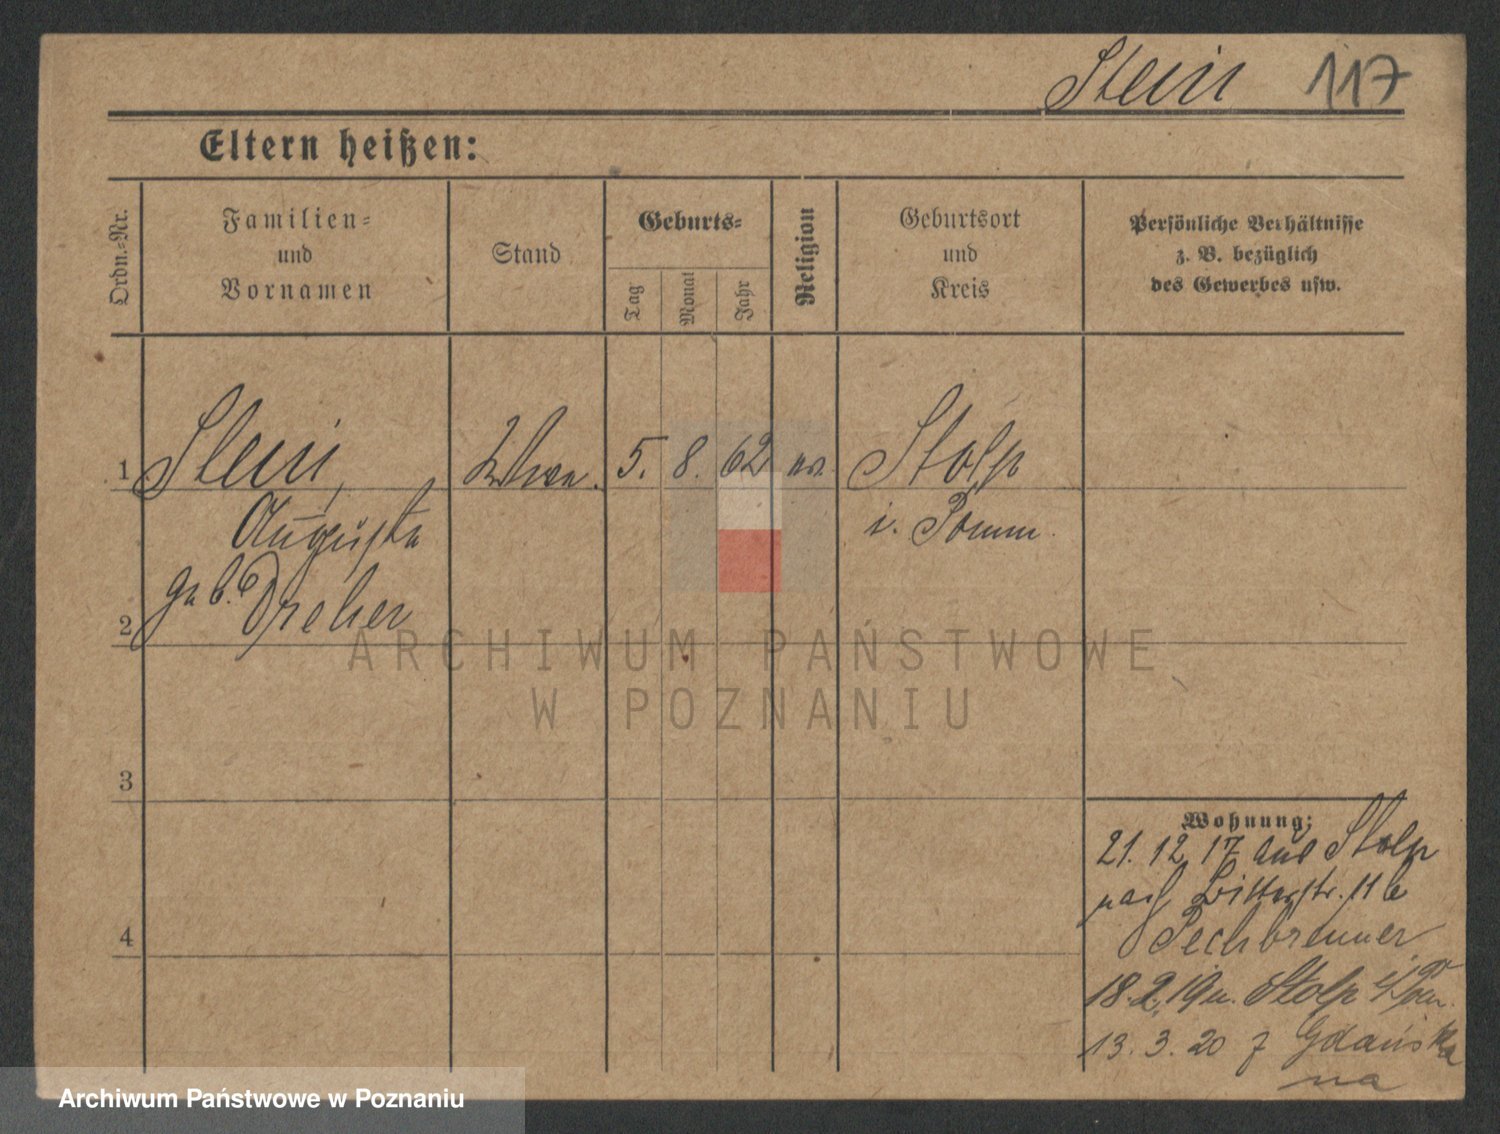 Stein 117
Eltern heißen:
Ordn.-Nr.
Familien-
und
Vornamen
Stand
Geburts-
Tag
Monat
Jahr
Religion
Geburtsort
und
Kreis
Persönliche Verhältnisse
z. B. bezüglich
des Gewerbes usw.
1 Stein, Wwe. 5. 8. 62 Stolp
Auguste i. Pomm.
geb. Dreher
2
3
4
Wohnung:
21. 12. 17 aus Stolp
nach 11b
Pechbrenner
18. 2. 19 n. Stolp i/Pom.
13. 3. 20 z Gdańska
na
ARCHIWUM PAŃSTWOWE
W POZNANIU
Archiwum Państwowe w Poznaniu